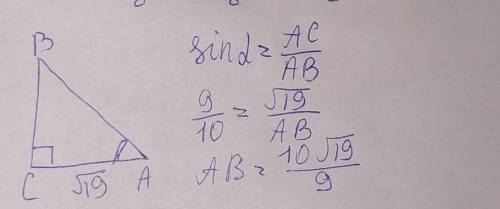 B
C √19 A
sin d = AC/AB
9/10 = √19/AB
AB = 10√19/9